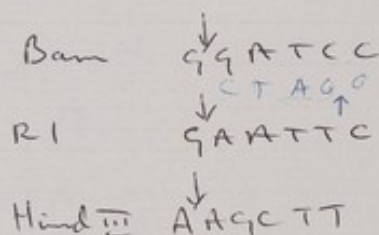 Bam GGATCC
CTAGG
RI GAATTC
Hind III AAGCTT